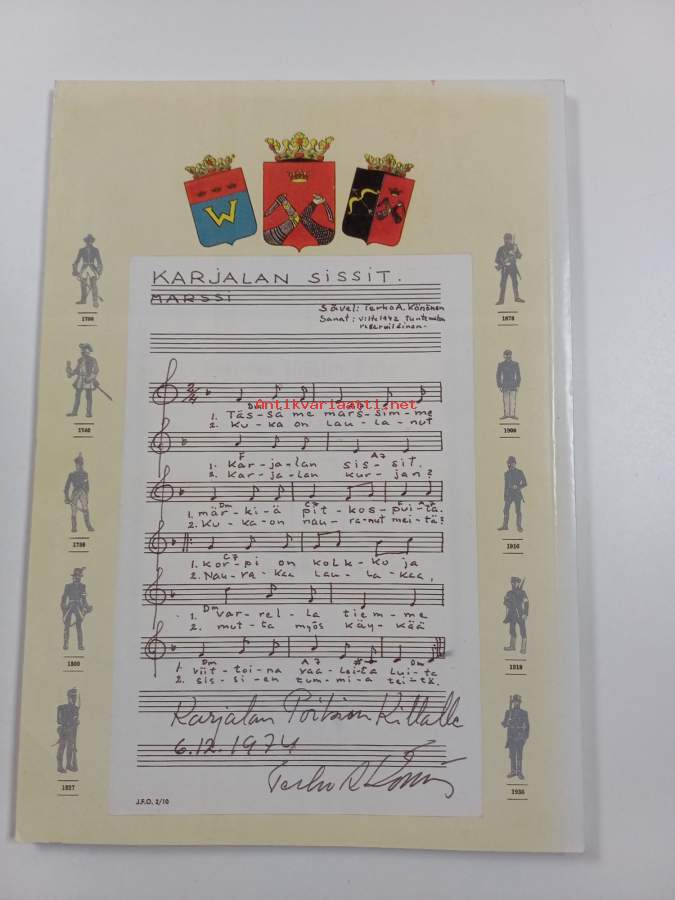 KARJALAN SISSIT.
MARSSI
Sävel: Terho A. Könönen
Sanat: vilta 1942 Tuntematon
Antikvariaatti.net
1. Täs-sä me mars-sim-me
2. Ku-ka on lau-la-nut
F A7
1. Kar-ja-lan sis-sit.
2. Kar-ja-lan kur-jan?
Dm C7
1. mär-ki-ä pit-kos-pui-ta.
2. Ku-ka-on nau-ra-nut mei-tä?
C7
1. Kor-pi on kolk-ko ja
2. Nau-ra-kaa lau-la-kaa,
Dm
1. var-rel-la tiem-me
2. mut-ta myös käy-kää
Dm A7 Dm
1. viit-toi-na vaa-lei-ta lui-ta
2. sis-si-en tum-mi-a tei-tä.
Karjalan Poikien Killalle
6.12.1974
Terho A Könönen
J.F.O. 2/10
1700
1740
1798
1800
1827
1878
1908
1916
1918
1936